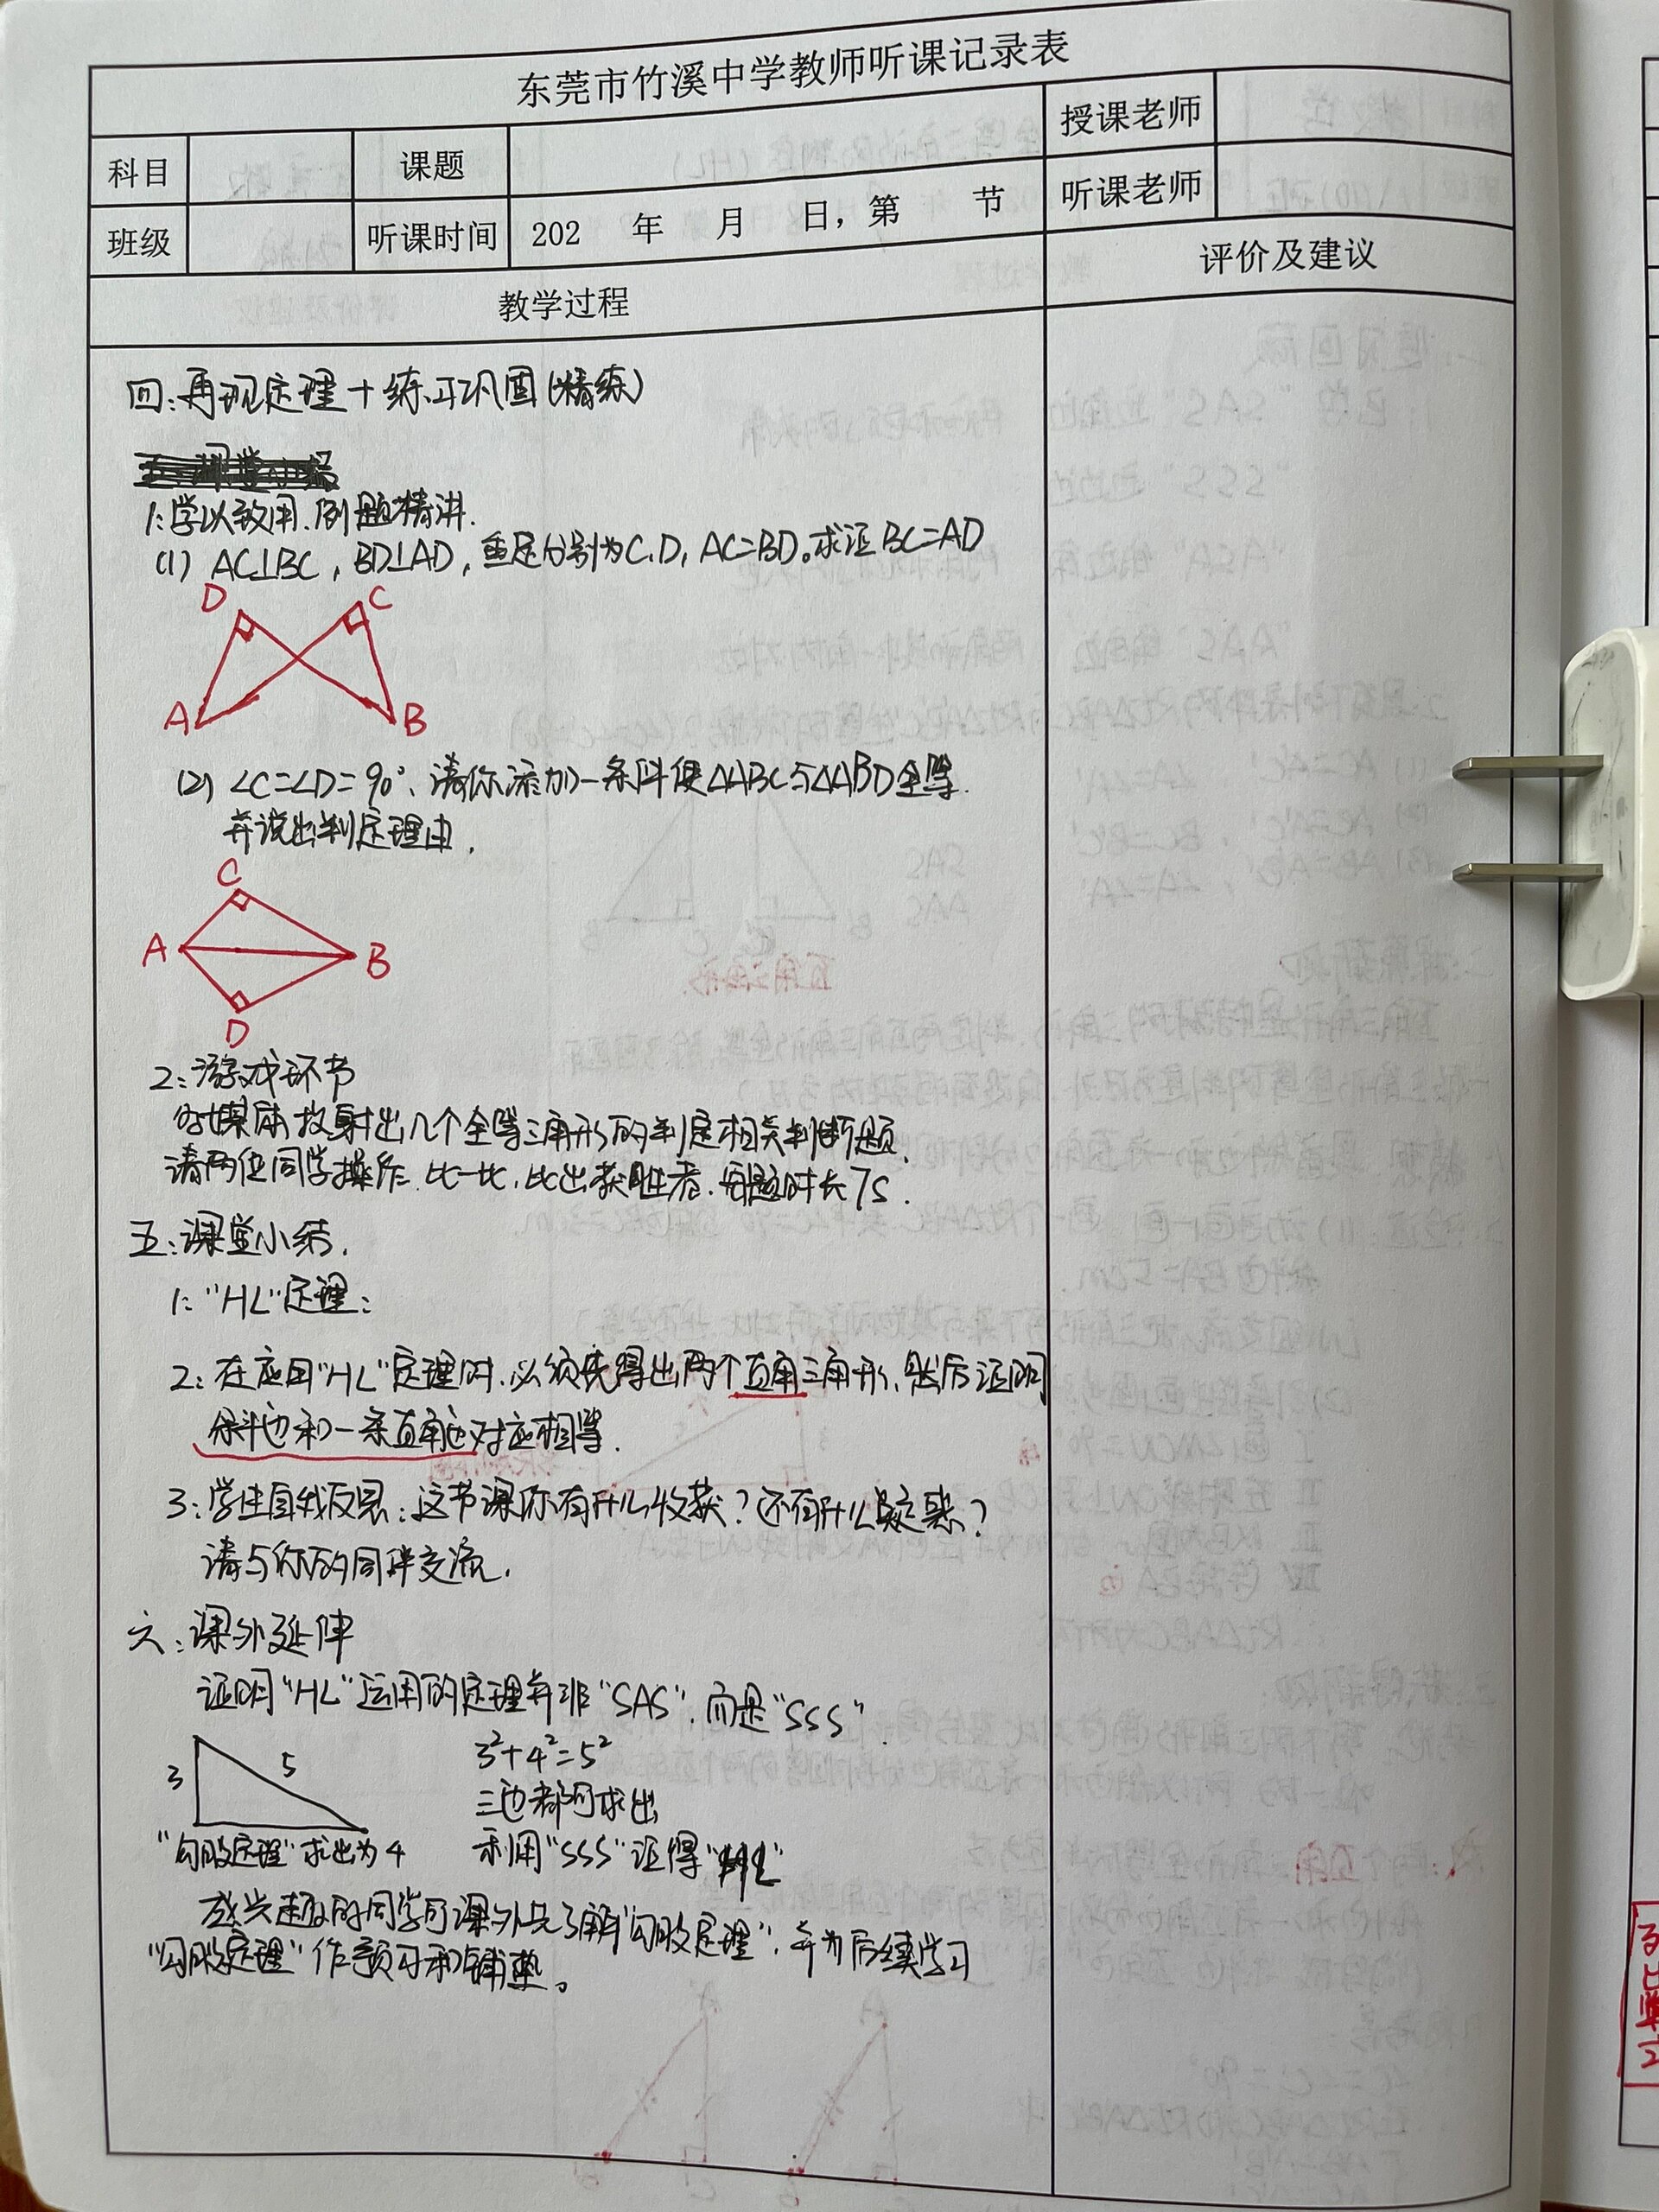 东莞市竹溪中学教师听课记录表
科目 课题 授课老师
班级 听课时间 202 年 月 日，第 节 听课老师
教学过程 评价及建议
四：再现定理＋练习巩固(精练)
1：学以致用、例题精讲.
(1) AC⊥BC，BD⊥AD，垂足分别为C、D，AC=BD。求证BC=AD
D C
A B
(2) ∠C=∠D=90°、请你添加一条件使△ABC与△ABD全等.
并说出判定理由.
C
A B
D
2：游戏环节
媒体放射出几个全等三角形的判定相关判断题.
请两位同学操作.比一比，比出获胜者.每题时长7s.
五：课堂小结.
1："HL"定理：
2：在应用"HL"定理时.必须先得出两个直角三角形，然后证明
斜边和一条直角边对应相等.
3：学生自我反思：这节课你有什么收获？还有什么疑惑？
请与你的同伴交流.
六：课外延伸
证明"HL"运用的定理并非"SAS"，而是"SSS".
3 5 3²+4²=5²
三边都可求出
"勾股定理"求出为4 利用"SSS"证得"HL"
感兴趣的同学可课外先了解"勾股定理"，并为后续学习
"勾股定理"作预习和铺垫。